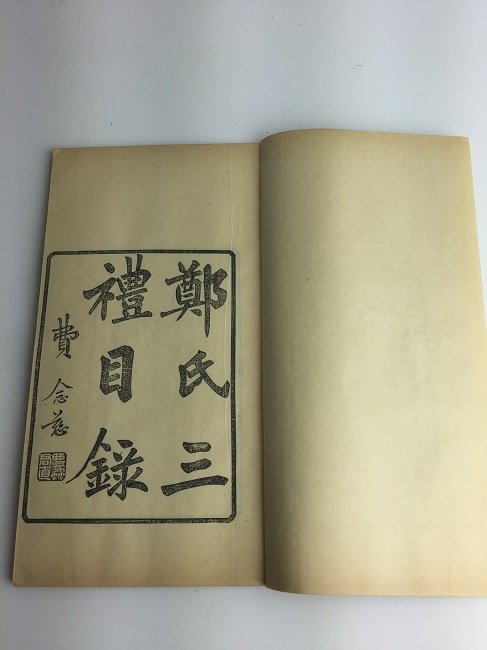 鄭氏三
禮目錄
費念慈